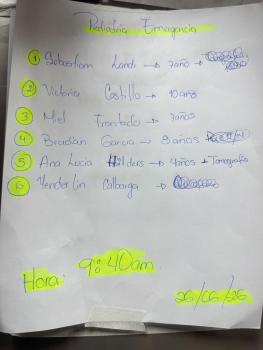 Pediatria Emergencia
① Sebastiam Landi → 7año →
② Victoria Castillo → 10 año
③ Miel Frontado → 7años
④ Brardian Garcia → 8 años
⑤ Ana Lucia → 4años + Tomografia
⑥ Yender lin →
Hora: 9:40am